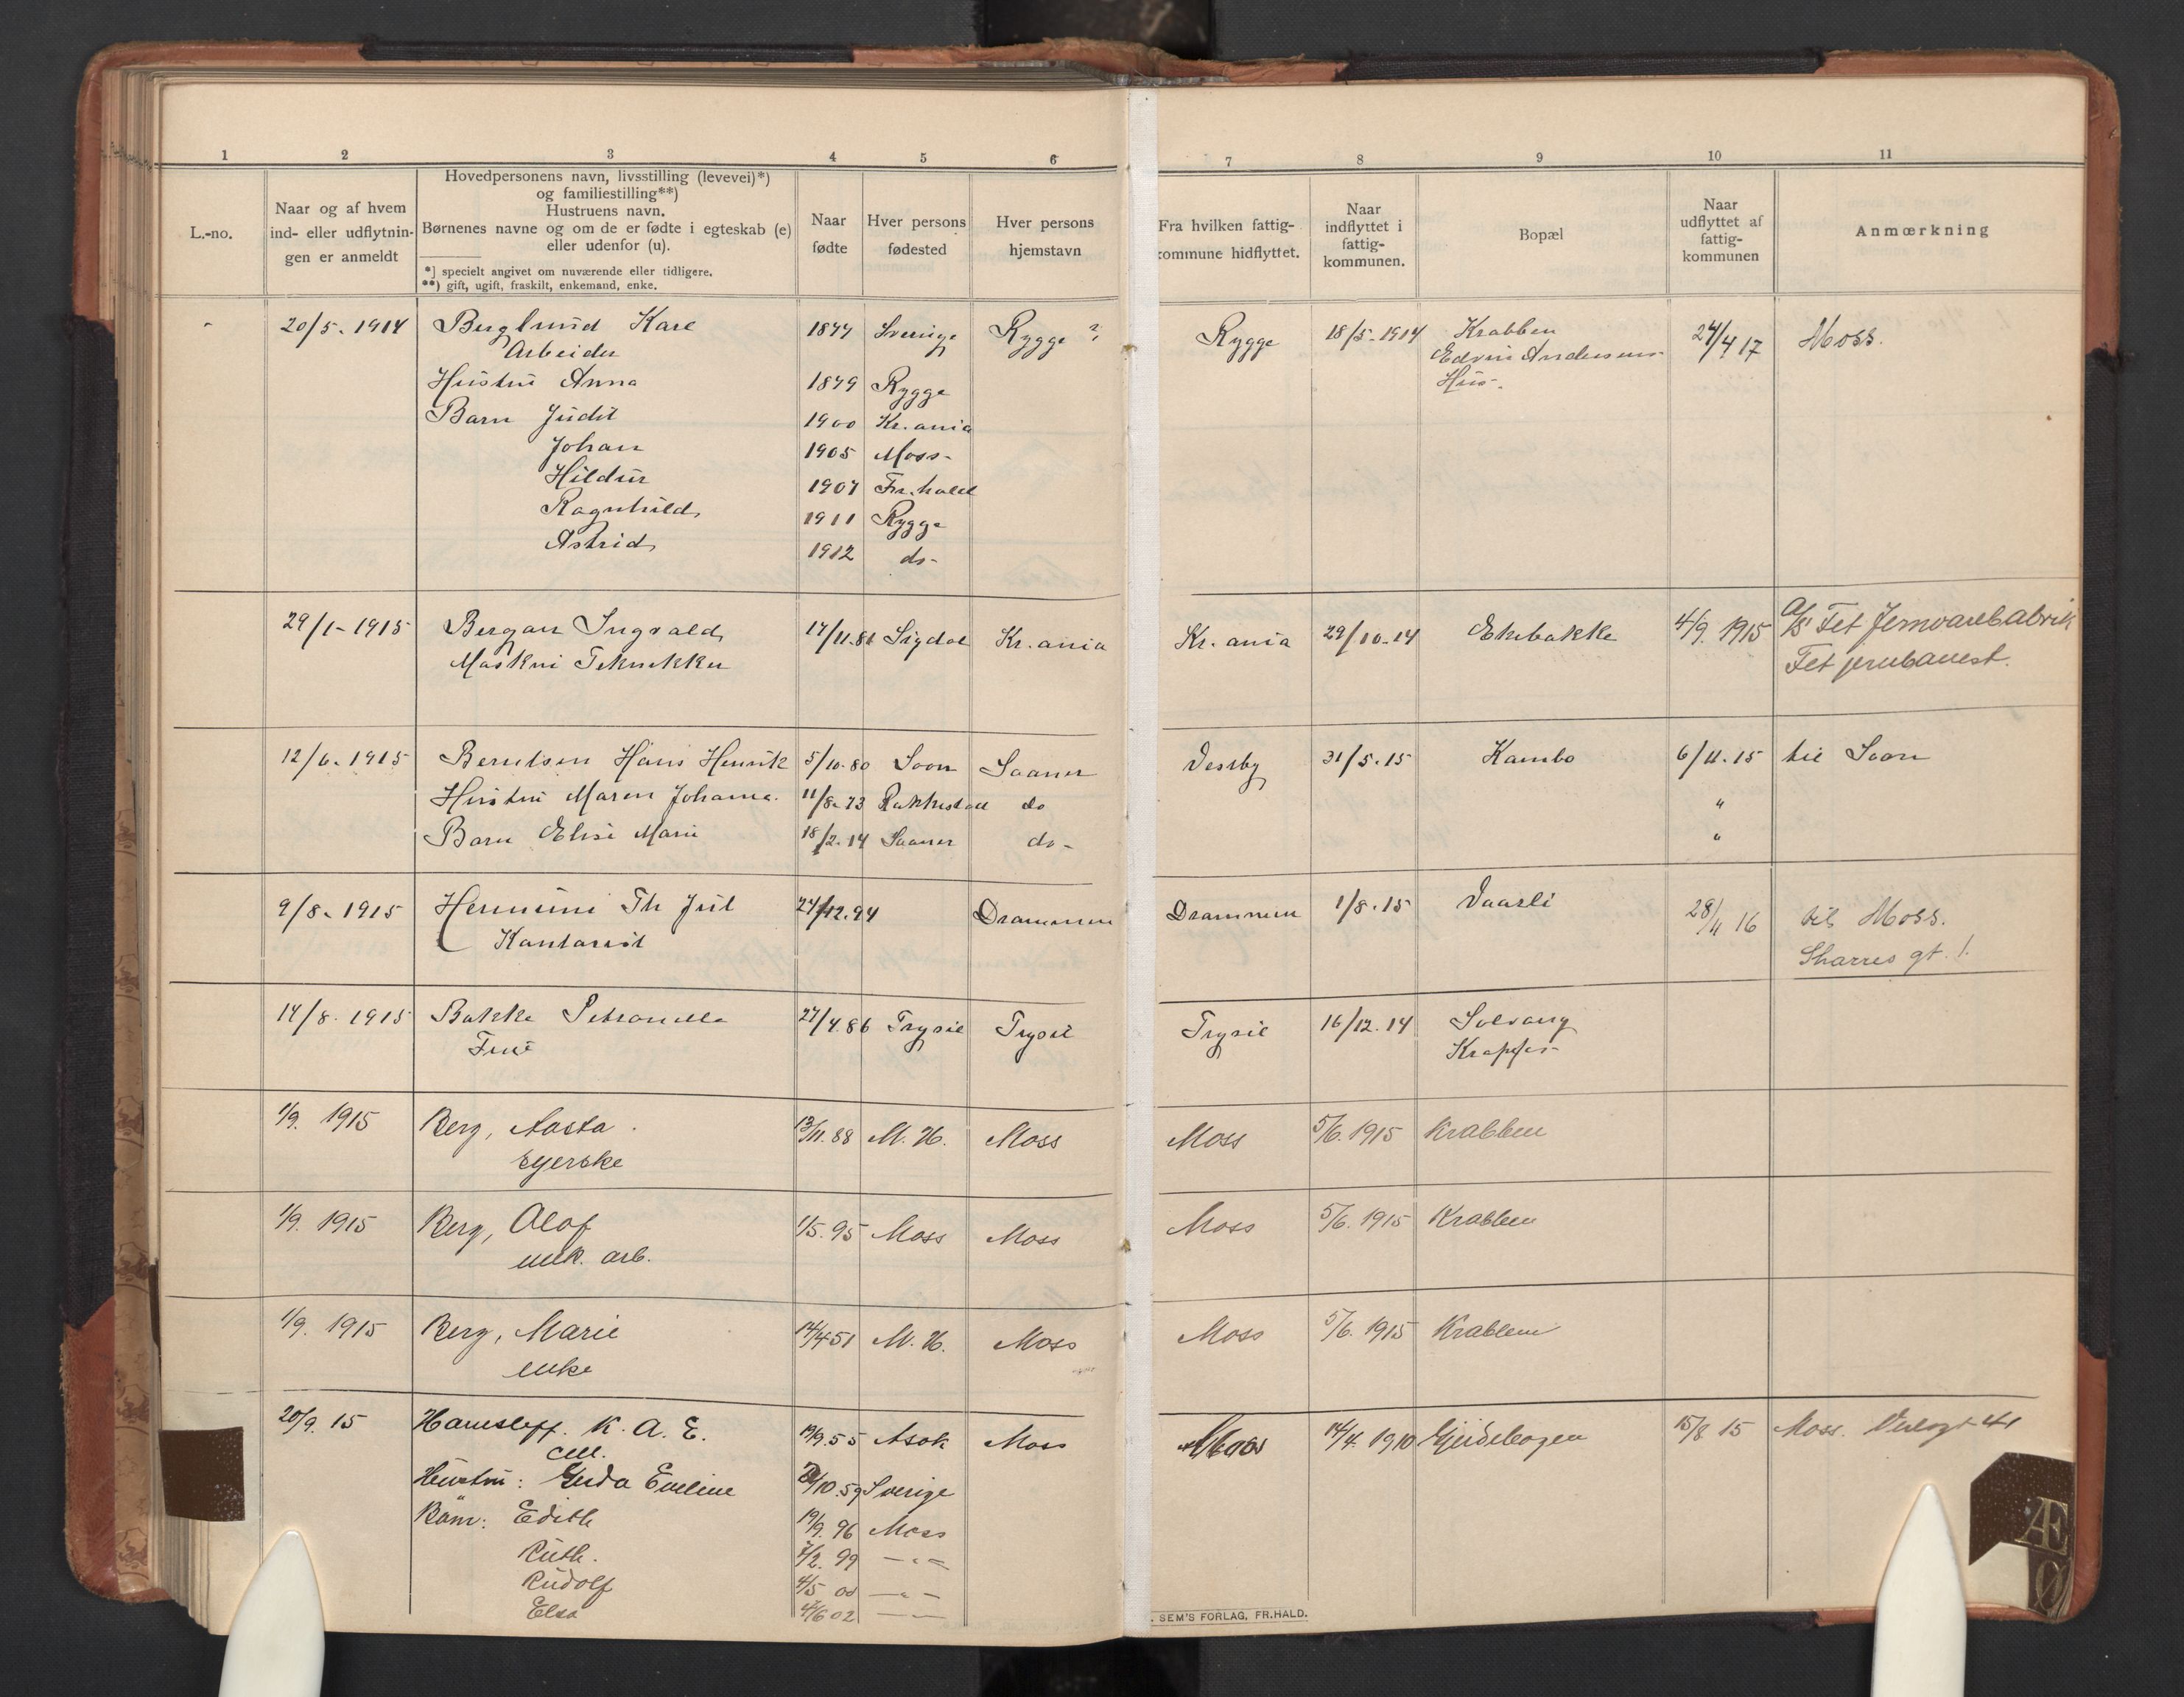 1 2 3 4 5 6 7 8 9 10 11
L.-no.
Naar og af hvem
ind- eller udflytnin-
gen er anmeldt
Hovedpersonens navn, livsstilling (levevei)*)
og familiestilling**)
Hustruens navn.
Børnenes navne og om de er fødte i egteskab (e)
eller udenfor (u).
*] specielt angivet om nuværende eller tidligere.
**) gift, ugift, fraskilt, enkemand, enke.
Naar
fødte
Hver persons
fødested
Hver persons
hjemstavn
Fra hvilken fattig-
kommune hidflyttet.
Naar
indflyttet i
fattig-
kommunen.
Bopæl
Naar
udflyttet af
fattig-
kommunen
Anmærkning
20/5. 1914 Berglund Karl 1877 Sverige Rygge ? Rygge 18/5-1914 Krabben 24/4 17 Moss.
Arbeider Edvin Andersens
Hustru Anna 1879 Rygge Hus-
Barn Judit 1900 Kr.ania
Johan 1905 Moss-
Hildur 1907 Fr.hald
Ragnhild 1911 Rygge
Astrid 1912 do-
29/1-1915 Bergan Ingvald 17/11.81 Sigdal Kr.ania Kr.ania 29/10-14 Ekebakke 4/9 1915 A/S Fet Jernvarefabrik
Maskin Tekniker Fet jernbanest.
12/6. 1915 Berntsen Hans Henrik 5/10.80 Soon Saaner Vestby 31/5.15 Kambo 6/11.15 til Soon
Hustru Maren Johanna. 11/8.73 Rakkestad do "
Barn Elise Marie 18/2.14 Saaner do- "
9/8. 1915 Th Juel 24/12.94 Drammen Drammen 1/8.15 Vaarli 28/4 16 til Moss.
Kontorist gt. 1.
14/8. 1915 Bakke Petronelle 27/4.86 Trysil Trysil Trysil 16/12.14 Solvang
Frue Krapfos-
1/9. 1915 Berg, Aasta. 13/11.88 M. H. Moss Moss 5/6.1915 Krabben
Syerske
1/9. 1915 Berg, Olof 1/5.95 Moss Moss Moss 5/6.1915 Krabben
mek. arb.
1/9. 1915 Berg, Marie 14/4 51 M. H. Moss Moss 5/6.1915 Krabben
enke
20/9. 15 K. A. E. 19/9.55 Asak Moss Moss 14/4. 1910 15/8 15 Moss. 41
Hustru: Eveline /10.59 Sverige
Børn: Edith 19/9. 96 Moss
Ruth. 7/2. 99 —"—
Rudolf 4/5 00 —"—
Elsa 4/6 02 —"—
. SEM'S FORLAG, FR.HALD.
Æ
Ø